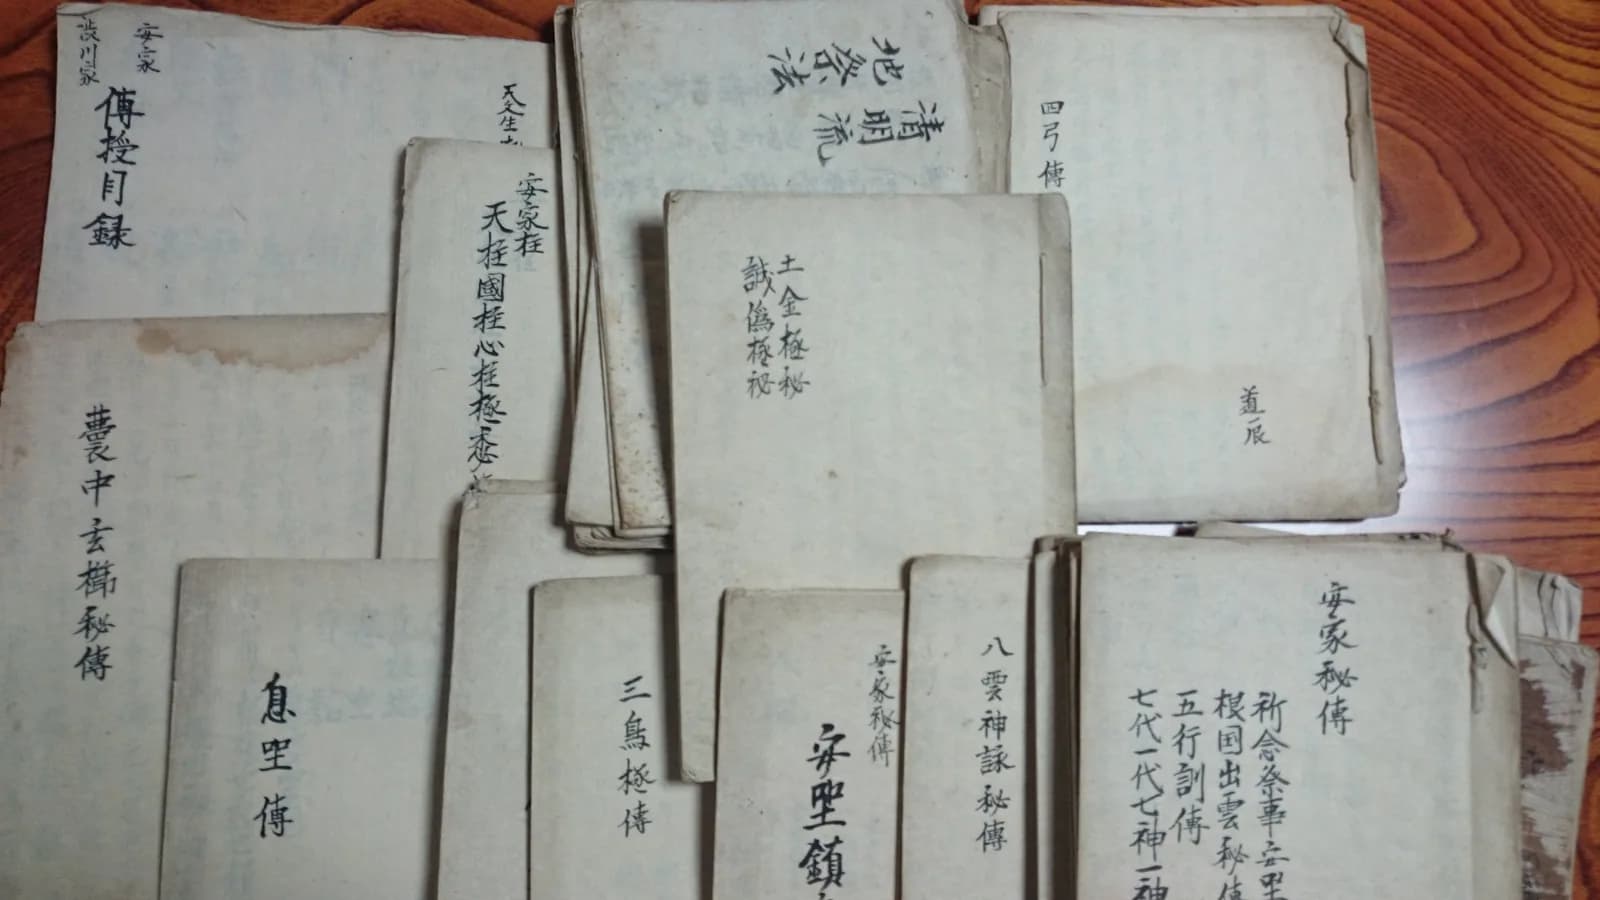 安家
渋川家
傳授目録
天文生
安家柱
天柱國柱心柱極秘
地祭法
清明流
四弓傳
道辰
土金極秘
誠偽極秘
農中玄櫛秘傳
息坐傳
三鳥極傳
安家秘傳
安坐鎮
八雲神詠秘傳
安家秘傳
祈念祭事安坐
根国出雲秘傳
五行訓傳
七代一代七神一神